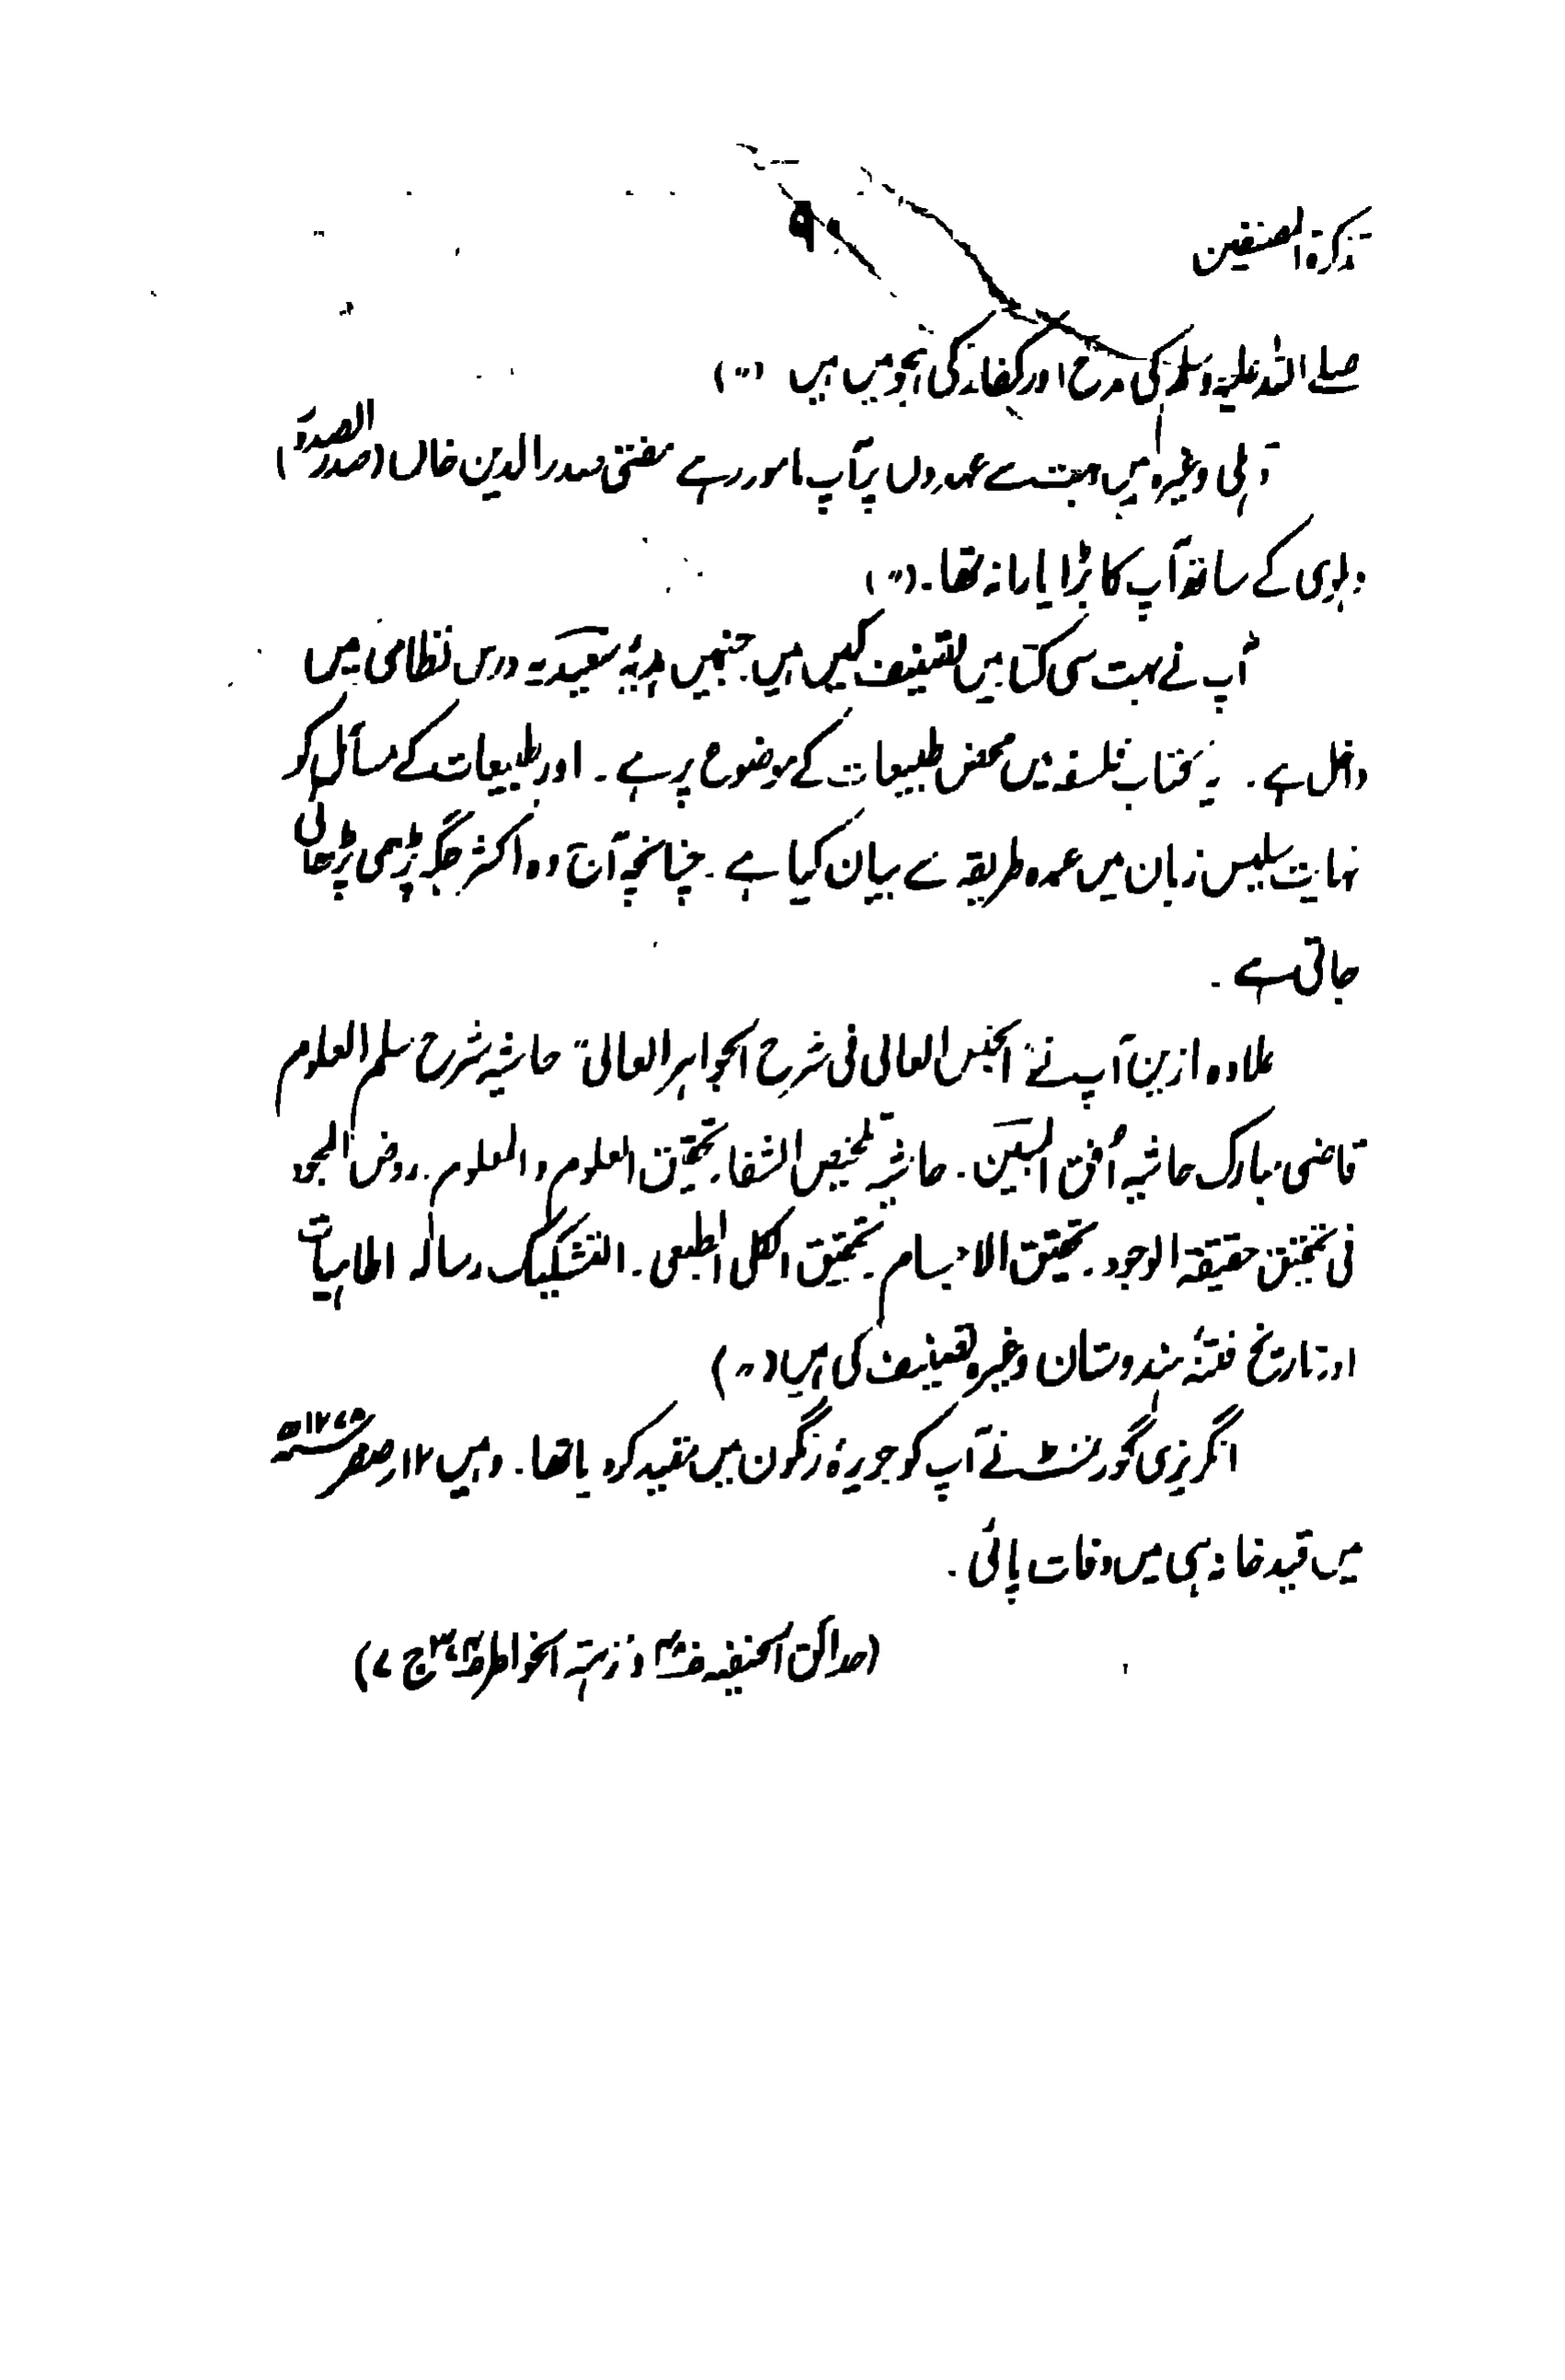 تذکرۃ المصنفین
۹۰
صلے اللہ علیہ وسلم کی مدح اور کفار کی ہجو میں ہیں (〃)
دہلی وغیرہ میں بہت سے عہدوں پر آپ مامور رہے مفتی صدر الدین خاں (صدر الصدور)
دہلوی کے ساتھ آپ کا بڑا یارانہ تھا۔ (〃)
آپ نے بہت سی کتابیں تصنیف کیں ہیں۔ جنہیں ہدیۂ سعیدیہ درس نظامی میں
داخل ہے۔ یہ کتاب فلسفہ میں محض طبیعات کے موضوع پر ہے۔ اور طبیعات کے مسائل کو
نہایت سلیس زبان میں عمدہ طریقہ سے بیان کیا ہے۔ چنانچہ آن وہ اکثر جگہ پڑھی پڑھائی
جاتی ہے۔
علاوہ ازیں آپ نے "الجنس العالی فی شرح الجواہر العالی" حاشیہ شرح سلم العلوم
قاضی مبارک حاشیہ اُفق المبین۔ حاشیہ تلخیص الشفا۔ تحقیق العلوم والمعلوم۔ روض المجود
فی تحقیق حقیقۃ الوجود۔ تحقیق الاجسام۔ تحقیق الکلی الطبعی۔ التشکیک رسالہ الماہیات
اور تاریخ فتنۂ ہندوستان وغیرہ تصنیف کی ہیں (〃)
انگریزی گورنمنٹ نے آپ کو جزیرۂ رنگون میں مقید کر دیا تھا۔ وہیں ۱۲ صفر ۱۲۷۸ھ
میں قید خانہ ہی میں وفات پائی۔
(حدائق الحنفیہ و نزہتہ الخواطر ج ۷)